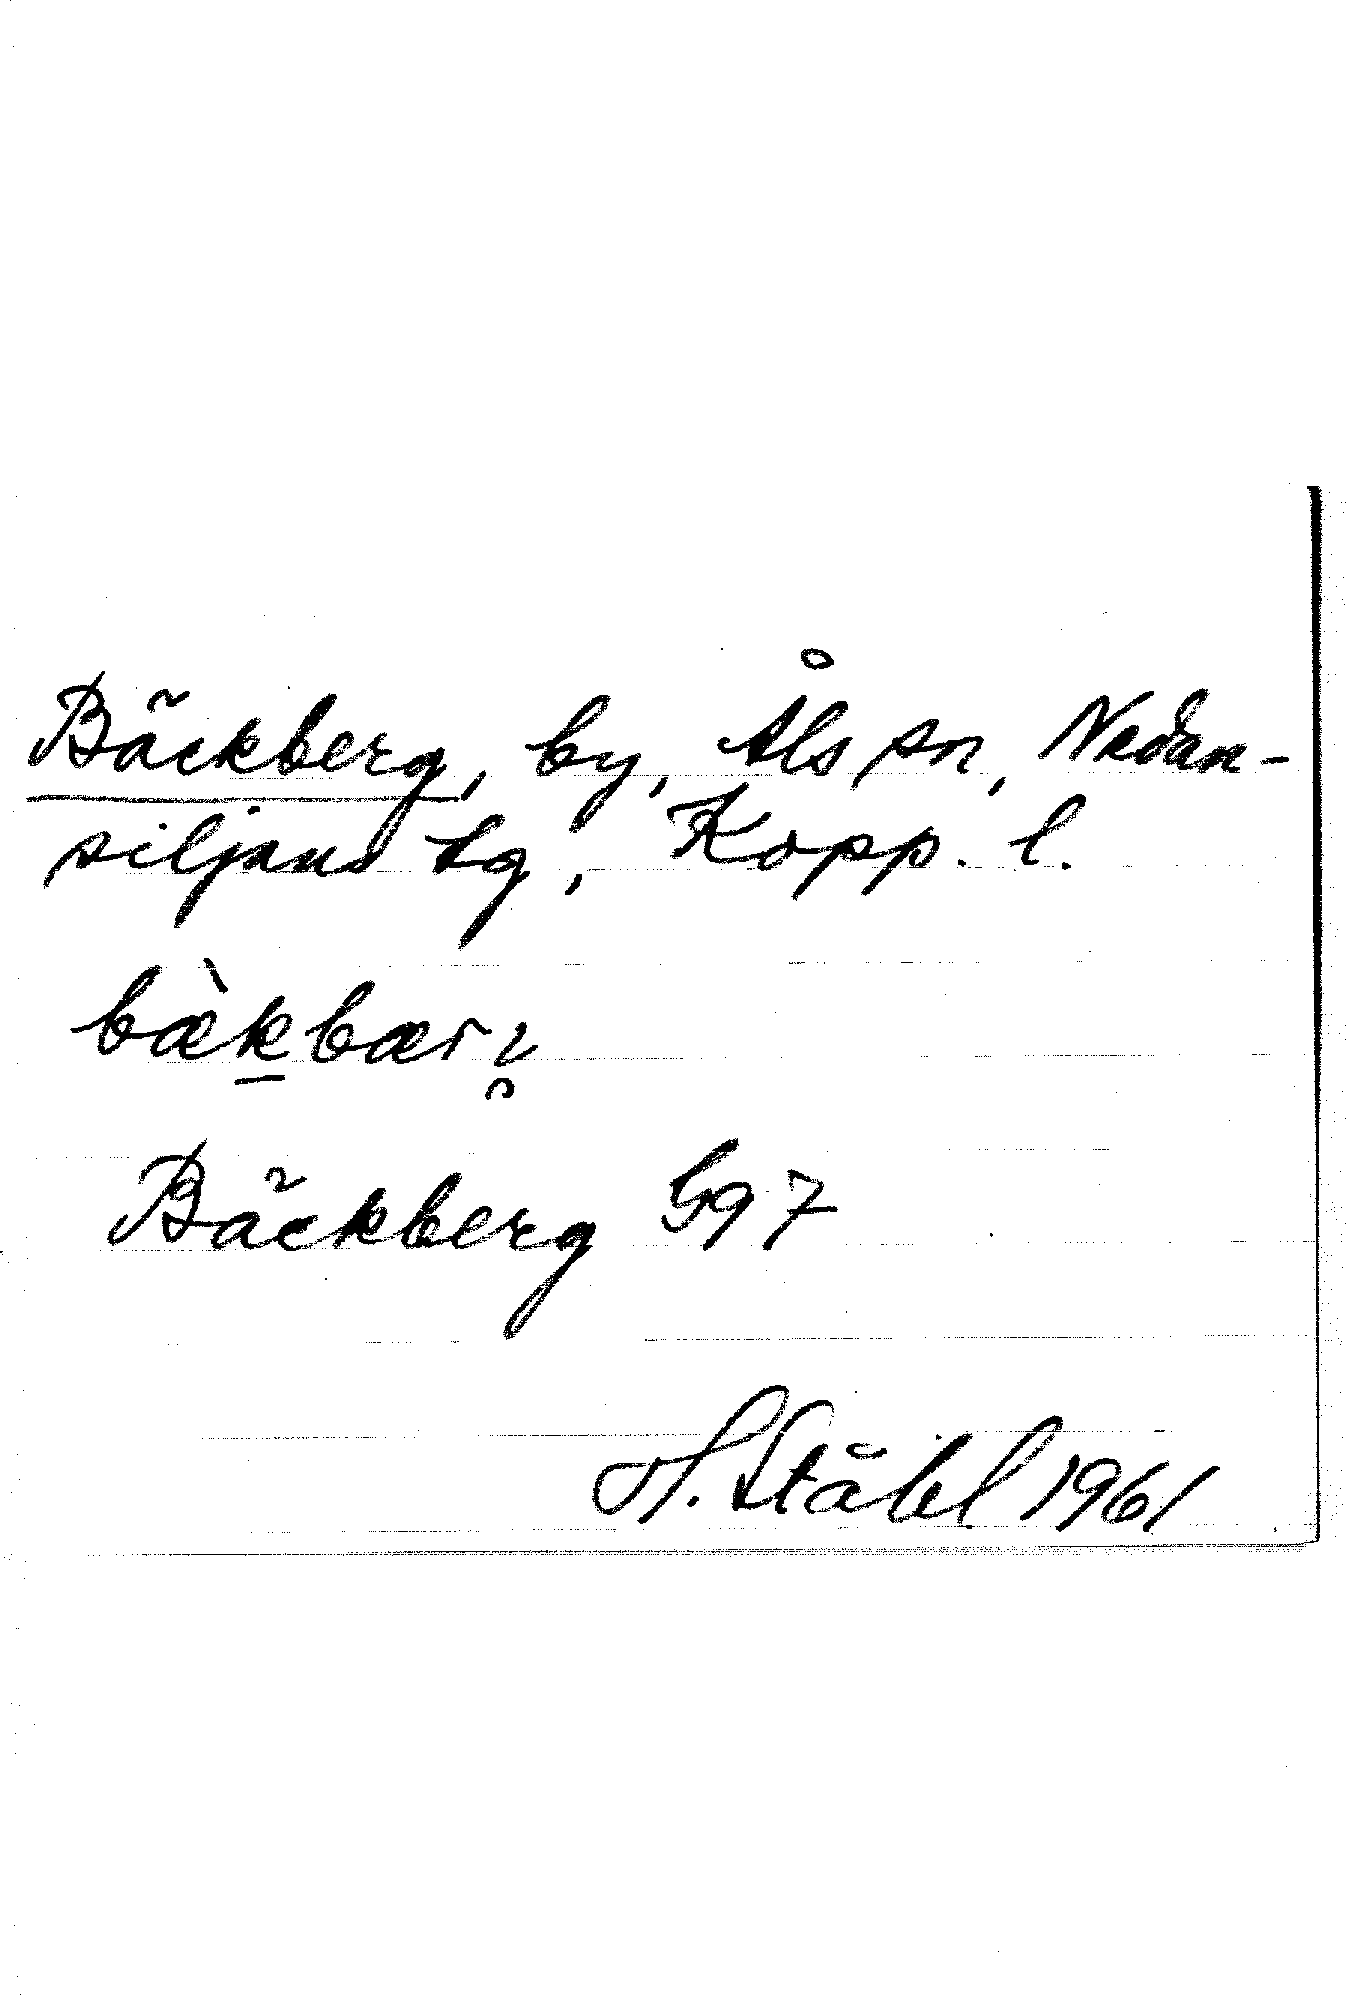 Bäckberg, by, Åls sn, Nedan-
siljans tg, Kopp. l.
bæ̀k̠bærı̯
Bäckberg G97
H. Ståhl 1961